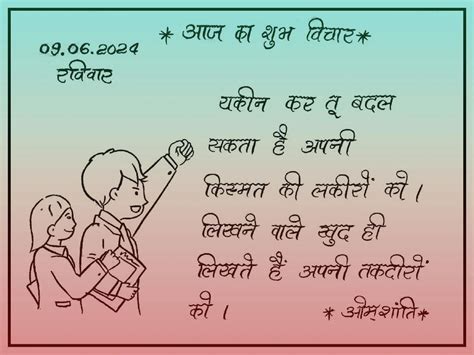 * आज का शुभ विचार *
09.06.2024
रविवार
यकीन कर तू बदल
सकता है अपनी
किस्मत की लकीरों को।
लिखने वाले खुद ही
लिखते हैं अपनी तकदीरों
को।
* ओम् शांति *